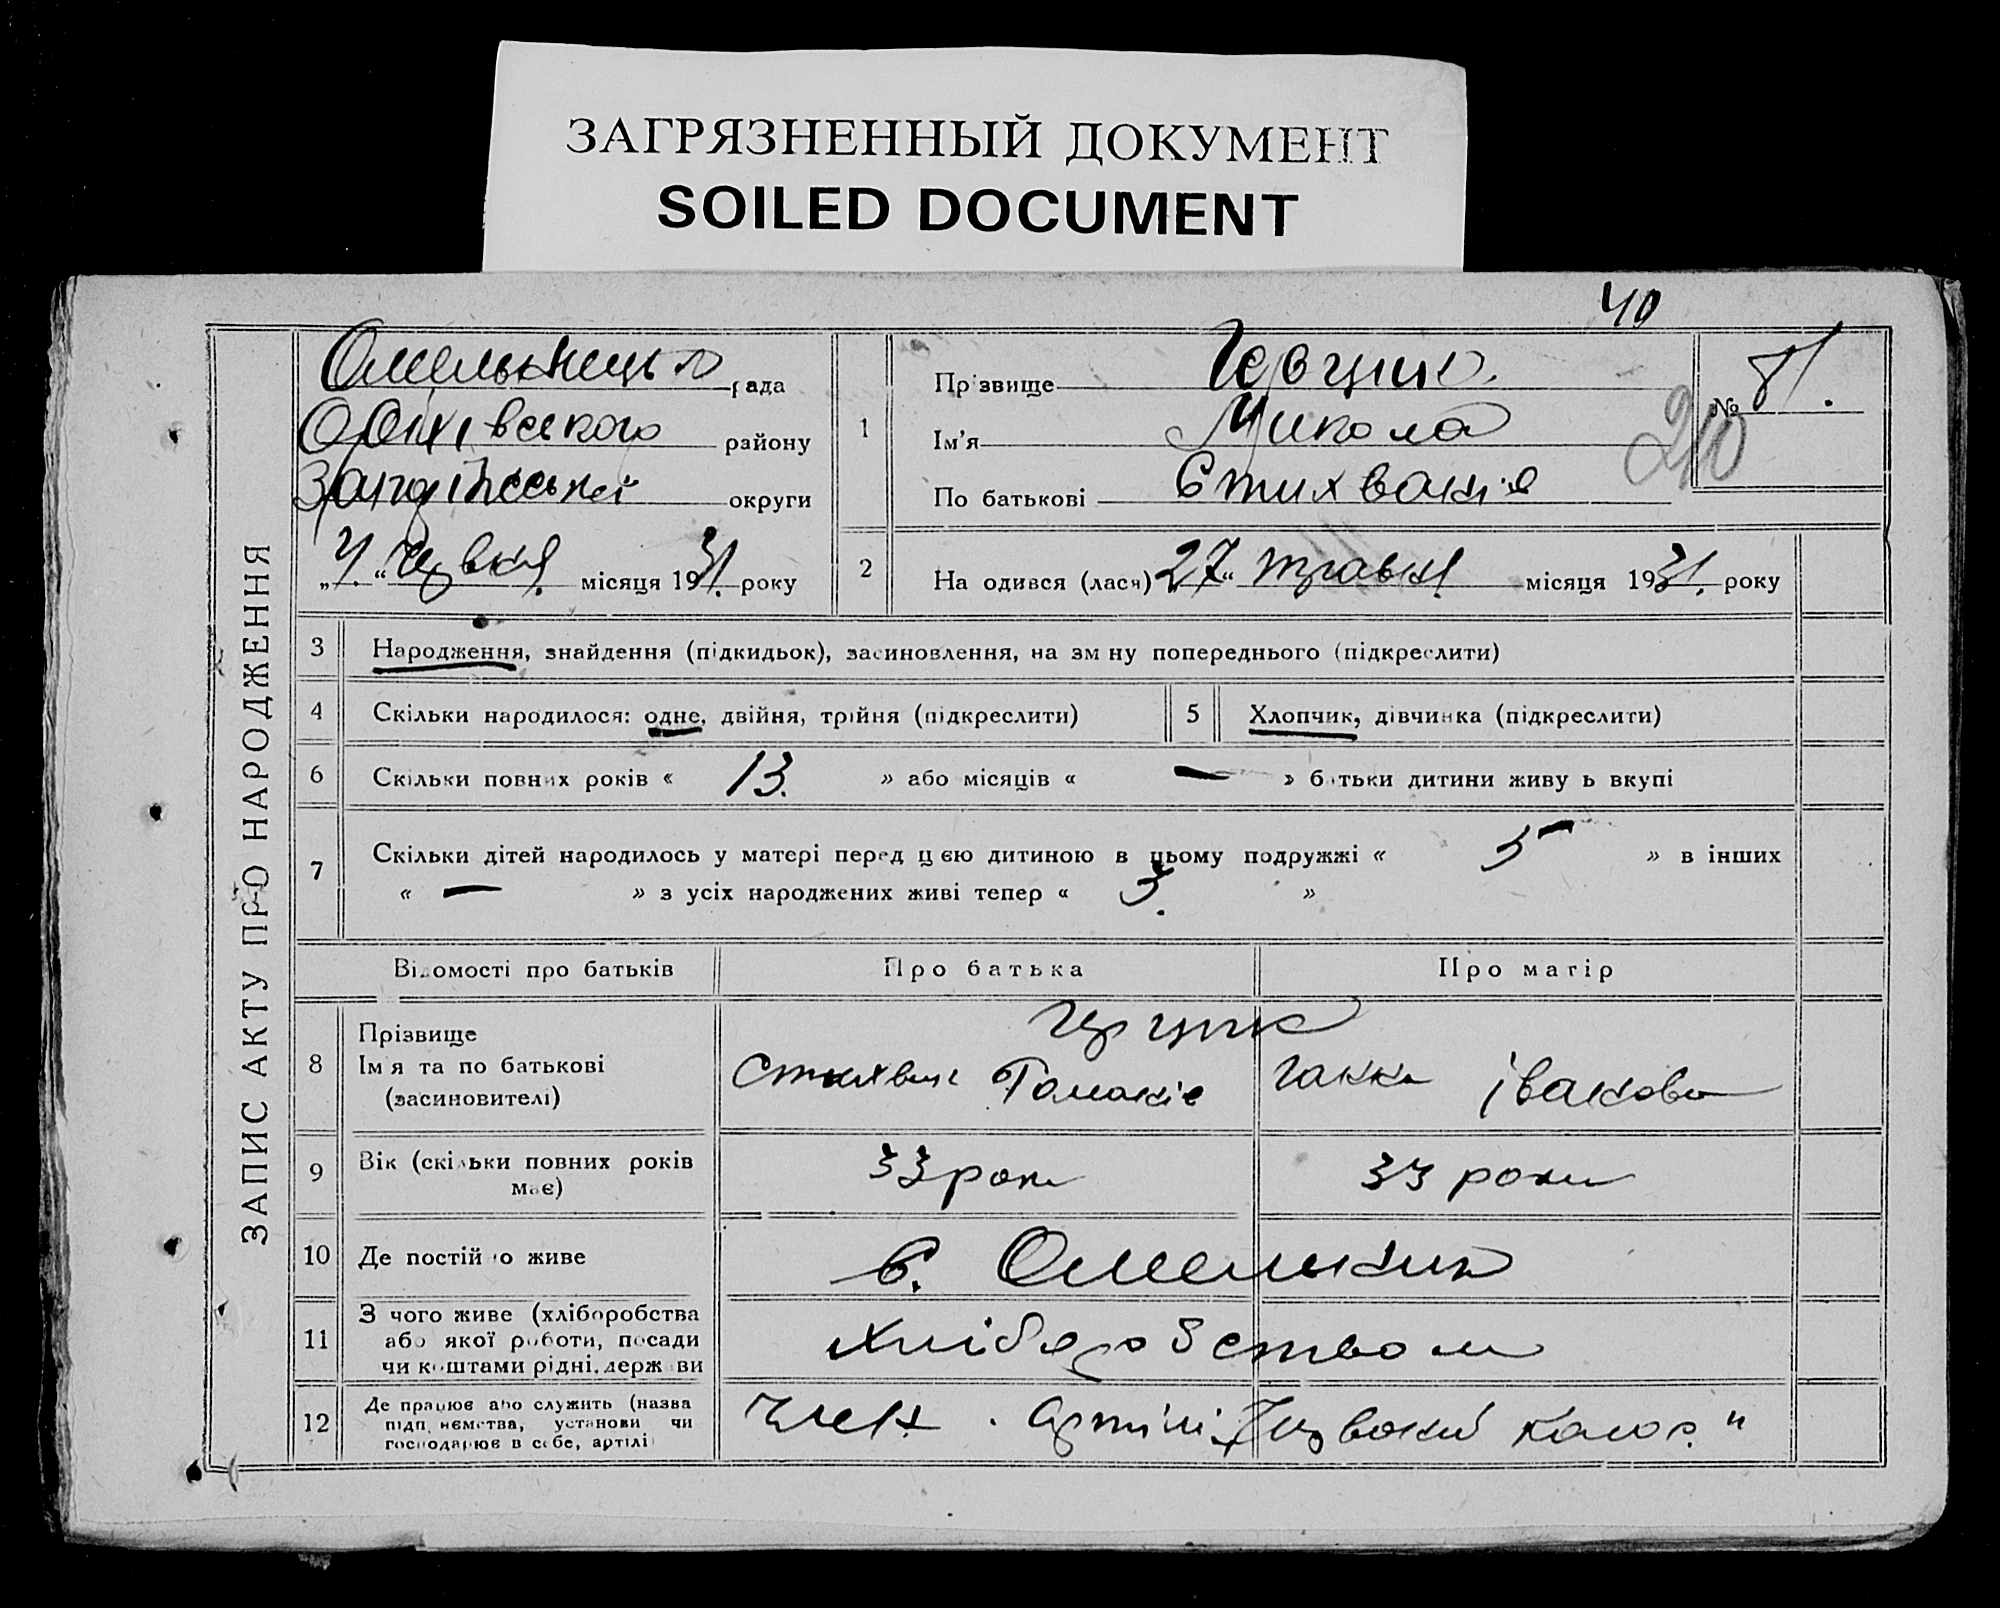 ЗАГРЯЗНЕННЫЙ ДОКУМЕНТ
SOILED DOCUMENT
40
ЗАПИС АКТУ ПРО НАРОДЖЕННЯ
Омельницька рада
Оріхівського району
округи
„4.“ червня місяця 1931. року
1
Прізвище
Ім'я Микола
По батькові Стихванів
№ 81.
210
2
На одився (лася) 27“ травня місяця 1931. року
3 Народження, знайдення (підкидьок), засиновлення, на зм ну попереднього (підкреслити)
4 Скільки народилося: одне, двійня, трійня (підкреслити)
5 Хлопчик, дівчинка (підкреслити)
6 Скільки повних років « 13. » або місяців « — » батьки дитини живу ь вкупі
7 Скільки дітей народилось у матері перед цею дитиною в цьому подружжі « 5 » в інших
« — » з усіх народжених живі тепер « 3. »
Відомості про батьків Про батька Про матір
8 Прізвище
Імя та по батькові Стихван Романів Ганна Іванова
(засиновителі)
9 Вік (скільки повних років має) 33 роки 33 роки
10 Де постійно живе с. Омельник
11 З чого живе (хліборобства
або якої роботи, посади
чи коштами рідні, держави
хліборобством
12 Де працює або служить (назва
підп иємства, установи чи
господарює в себе, артілі
член артілі „Червоний колос"